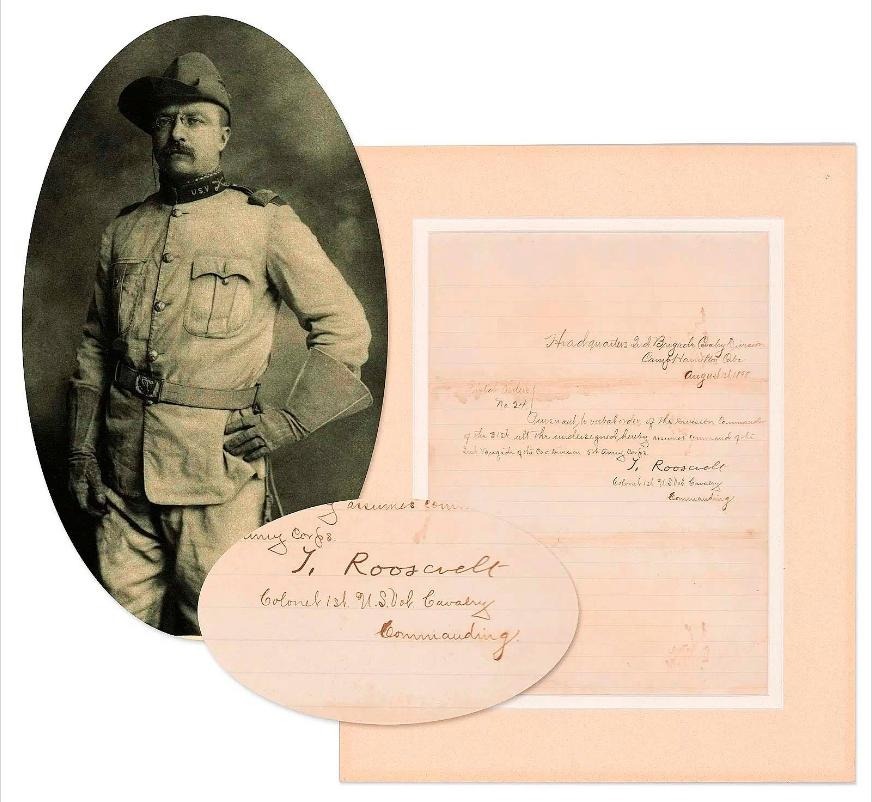 USV
Headquarters 2nd Brigade Cavalry Division
Camp Hamilton Cuba
August 1st 1898
No. 24
Pursuant to verbal order, of the Division Commander
of the 31st ult the undersigned hereby assumes command of the
2nd Brigade of the Cav Division 5th Army Corps.
T. Roosevelt
Colonel 1st U.S. Vol Cavalry
Commanding
assumes com
Army Corps.
T. Roosevelt
Colonel 1st U.S. Vol Cavalry
Commanding